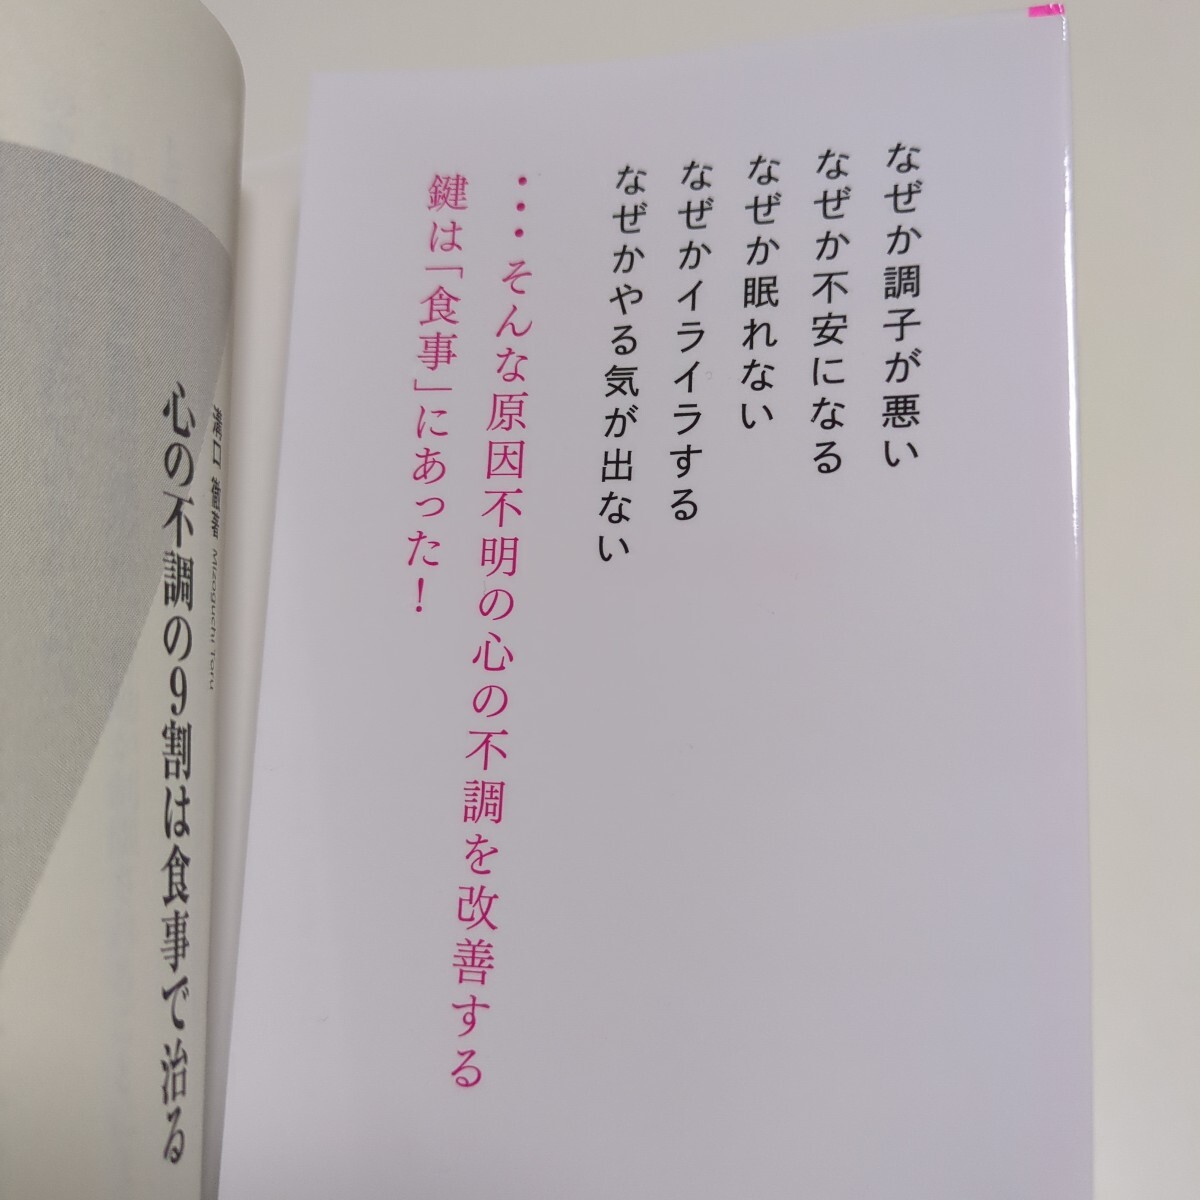 なぜか調子が悪い
なぜか不安になる
なぜか眠れない
なぜかイライラする
なぜかやる気が出ない
・・・そんな原因不明の心の不調を改善する
鍵は「食事」にあった！
溝口 徹著 Mizoguchi Toru
心の不調の9割は食事で治る